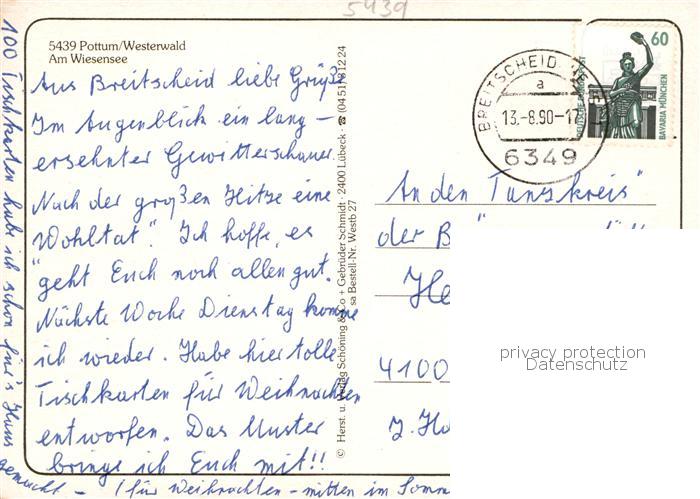 5439
5439 Pottum/Westerwald
Am Wiesensee
Aus Breitscheid liebe Grüße
Im Augenblick ein lang –
ersehnter Gewitterschauer.
Nach der großen Hitze eine
"Wohltat". Ich hoffe, es
geht Euch noch allen gut.
Nächste Woche Dienstag komme
ich wieder. Habe hier tolle
Tischkarten für Weihnachten
entworfen. Das Muster
bringe ich Euch mit!!
100 Tischkarten habe ich schon für's Haus
gemacht – (für Weihnachten – mitten im Somm
© Herst. u. Verlag Schöning & Co + Gebrüder Schmidt · 2400 Lübeck · ☎ (04 51) 3 12 24
sa Bestell-Nr. Westb 27
BREITSCHEID
a
13.-8.90-17
6349
60
DEUTSCHE BUNDESPOST
BAVARIA MÜNCHEN
An den "Tanzkreis"
der B
He
4100
z. H
privacy protection
Datenschutz